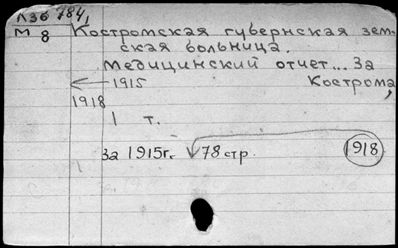 Л36 784,
М 8
Костромская губернская зем-
ская больница.
Медицинский отчет... За
1915 Кострома,
1918
1 т.
За 1915г. 78 стр. 1918